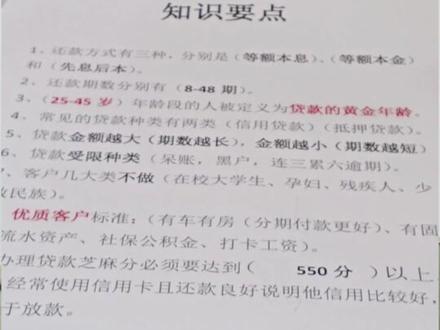 知识要点
1、还款方式有三种，分别是（等额本息）、（等额本金）
和（先息后本）。
2、还款期数分别有（8-48 期）。
3、（25-45 岁）年龄段的人被定义为贷款的黄金年龄。
4、常见的贷款种类有两类（信用贷款）（抵押贷款）。
5、贷款金额越大（期数越长），金额越小（期数越短）
6、贷款受限种类（呆账，黑户，连三累六逾期）。
、客户几大类不做（在校大学生、孕妇、残疾人、少
数民族）。
优质客户标准：（有车有房（分期付款更好）、有固
流水资产、社保公积金、打卡工资）。
办理贷款芝麻分必须要达到（ 550 分 ）以上
经常使用信用卡且还款良好说明他信用比较好，
于放款。